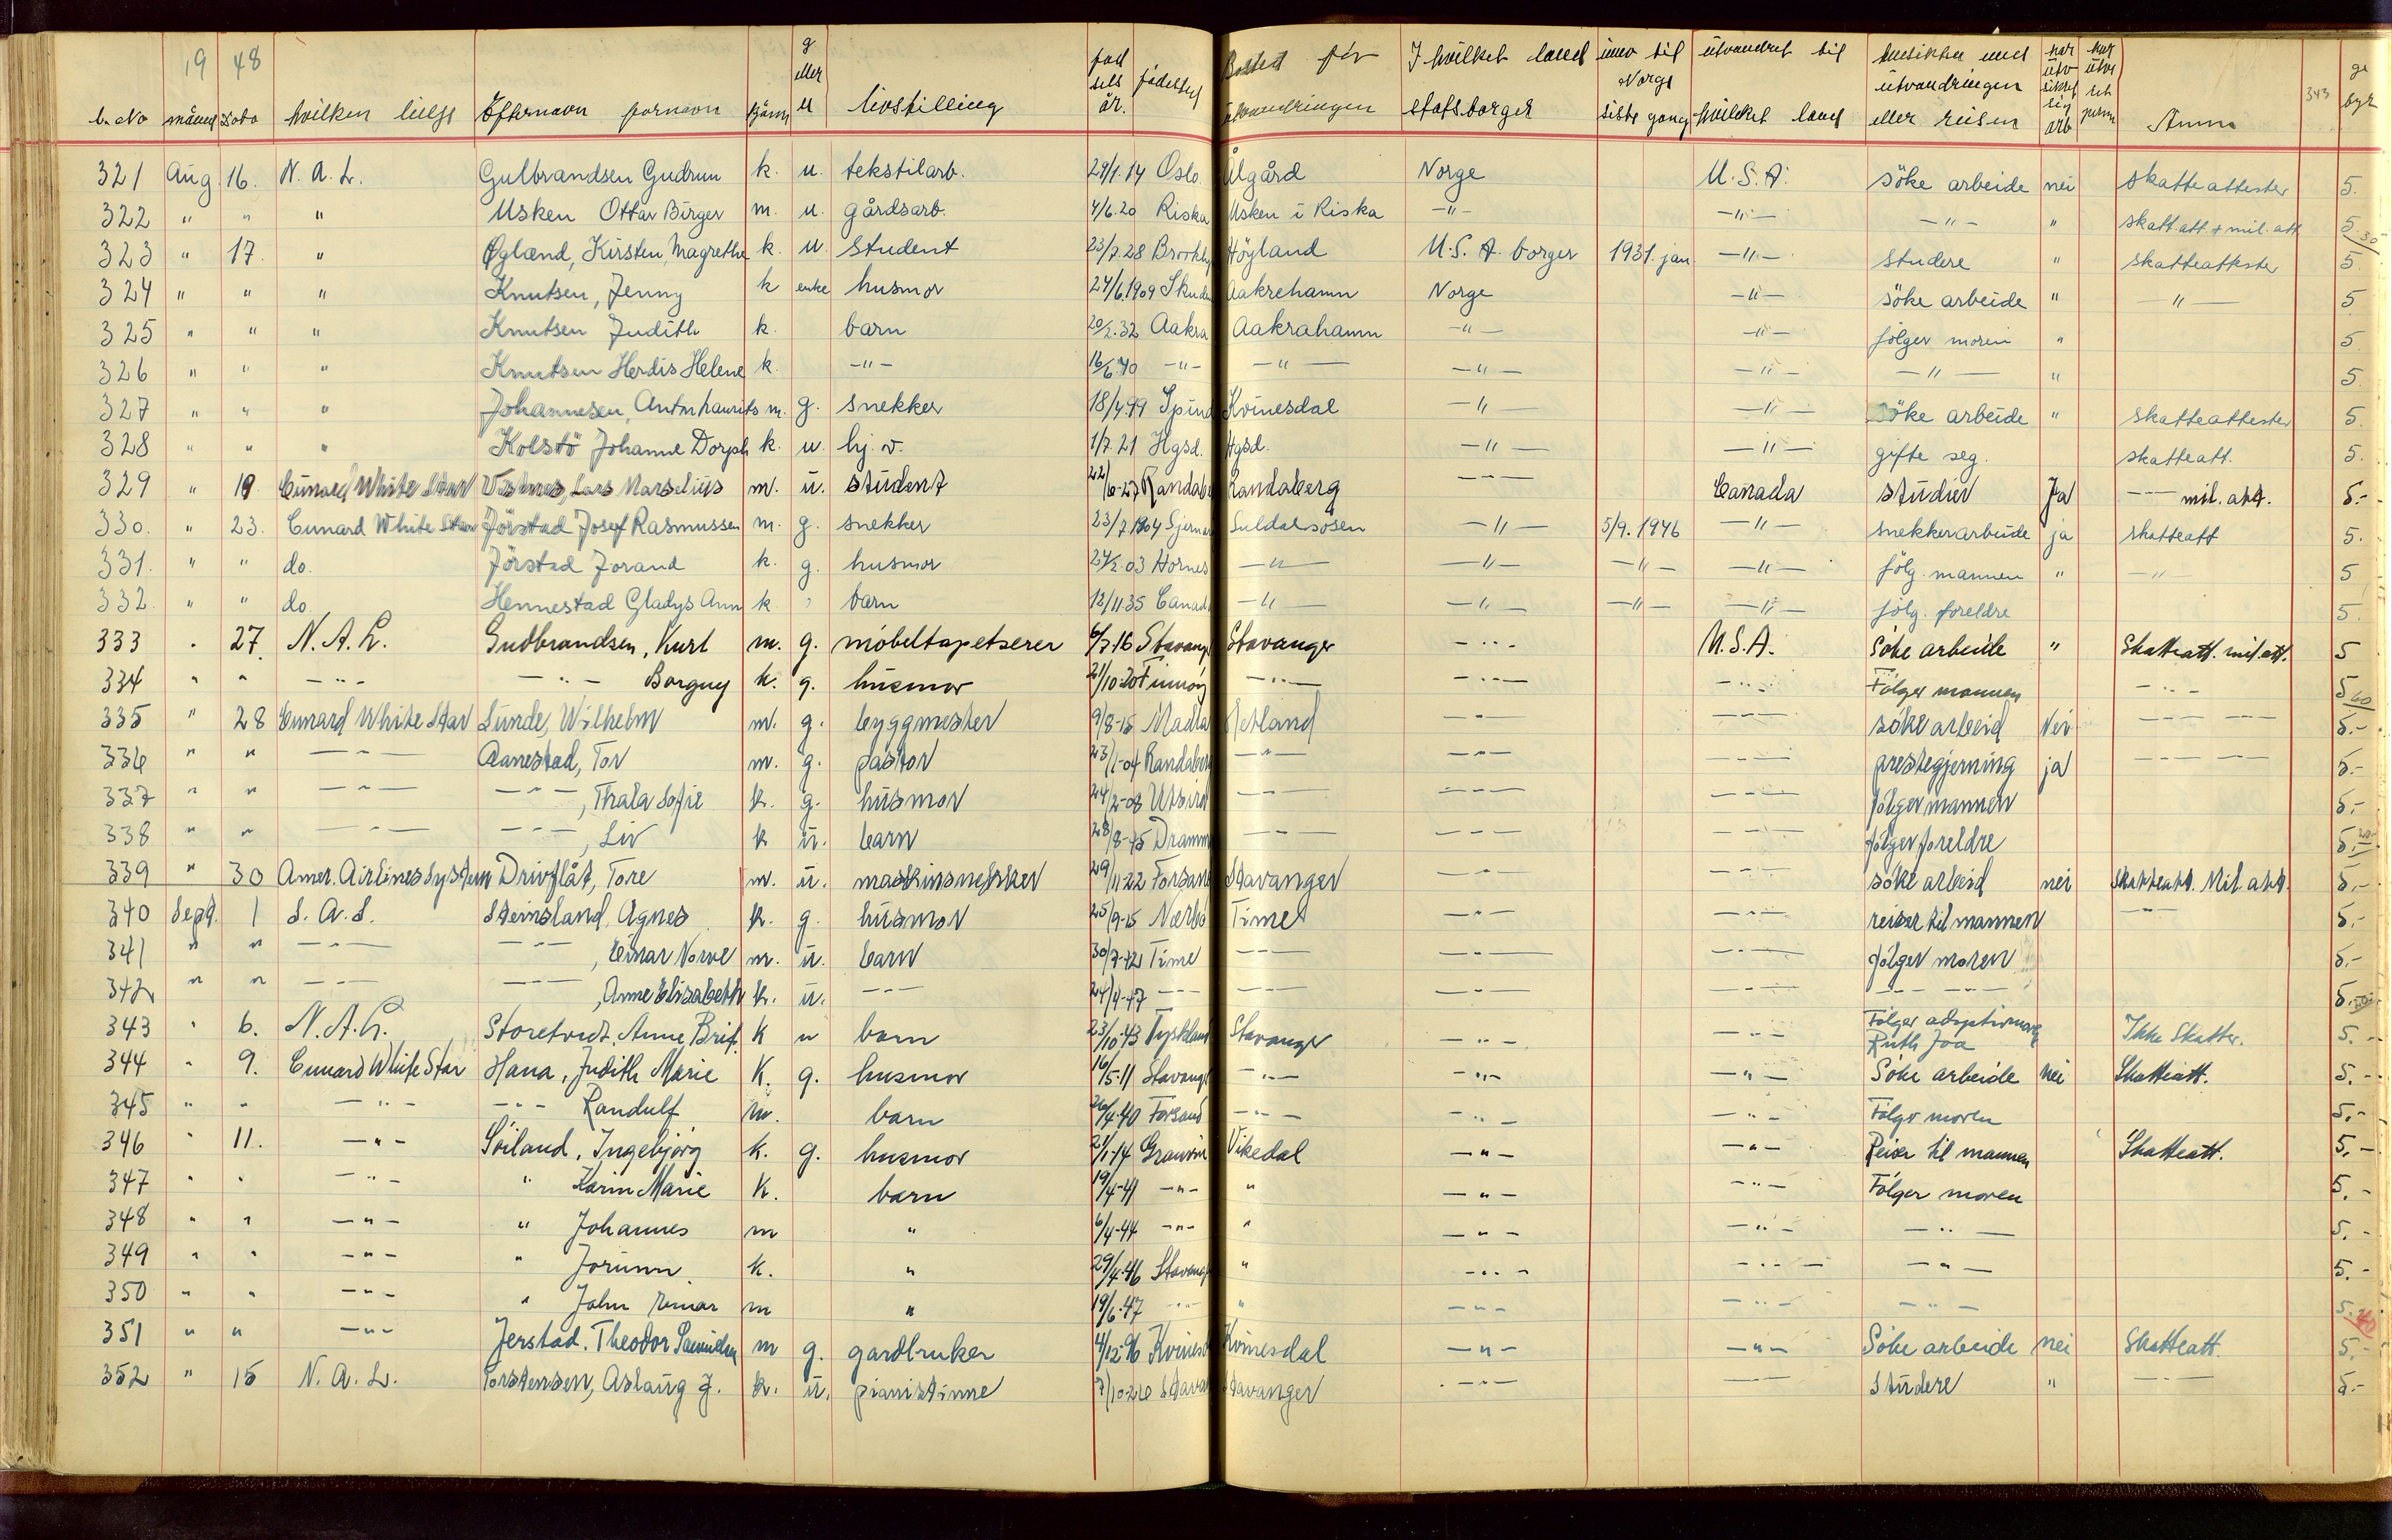 19 48
L. No måned Dato hvilken linje Efternavn fornavn kjønn g eller u livstilling fød sels år. fødested Bosted før utvandringen I hvilket land statsborger innv til Norge siste gang utvandret til hvilket land hensikten med utvandringen eller reisen har utv sikret sig arb har utv ret Anm 343 ge byr
321 Aug. 16. N. A. L. Gulbrandsen Gudrun k. u. tekstilarb. 29/1.14 Oslo. Ålgård Norge U.S.A. söke arbeide nei skatteattester 5.
322 " " " Usken Ottar Birger m. u. gårdsarb. 4/6.20 Riska Usken i Riska -"- -"- -"- " skatt.att + mil.att 5.
323 " 17. " Øgland, Kirsten, Magrethe k. u. student 23/7.28 Høyland U.S.A. borger 1931. jan. -"- studere " skatteattester 5.
324 " " " Knutsen, Jenny k enke husmor 24/6.1909 Skude Aakrehamn Norge -"- söke arbeide " -"- 5
325 " " " Knutsen Judith k. barn 20/2.32 Aakra Aakrahamn -"- -"- fölger moren " 5
326 " " " Knutsen Herdis Helene k. -"- 16/6.40 -"- -"- -"- -"- -"- " 5.
327 " " " Johannesen, Anton Laurits m. g. snekker 18/4.99 Spind Kvinesdal -"- -"- söke arbeide " skatteattester 5.
328 " " " Kolstö Johanne Dorph k. u. hj. v. 1/7.21 Hgsd. Hgsd. -"- -"- gifte seg. skatteatt. 5.
329 " 19 Cunard White Star Vestnes, Lars Marselius m. u. student 22/6-27 Randabe Randaberg -"- Canada studier Ja -"- mil.att. 5.-
330. " 23. Cunard White Star Jörstad Josef Rasmussen m. g. snekker 23/7 1904 Sjernar Suldalsosen -"- 5/9.1946 -"- snekkerarbeide ja skatteatt 5.
331. " " do. Jörstad Jorand k. g. husmor 24/2.03 Hornes -"- -"- -"- -"- fölg. mannen " -"- 5
332. " " do. Hennestad Gladys Ann k " barn 12/11.35 Canada -"- -"- -"- -"- fölg. foreldre 5.
333 " 27. N. A. L. Gudbrandsen, Kurt m. g. möbeltapetserer 6/7.16 Stavang Stavanger -"- U.S.A. Söke arbeide " Skatteatt. mil.att. 5
334 " " -"- -"- Borgny k. g. husmor 21/10.20 Finnöy -"- -"- -"- Fölger mannen -"- 5
335 " 28 Cunard White Star Lunde, Wilhelm m. g. byggmester 9/8-15 Madla Hetland -"- -"- söke arbeid Nei -"- -"- 5.-
336 " " -"- Aanestad, Tor m. g. pastor 23/1-04 Randaberg -"- -"- -"- prestegjerning ja -"- -"- 5.-
337 " " -"- -"-, Thala Sofie k. g. husmor 24/2-08 Utsira -"- -"- -"- fölger mannen 5.-
338 " " -"- -"-, Liv k u. barn 28/8-45 Dramm -"- -"- -"- fölger foreldre 5.-
339 " 30 Amer. Airlines System Drivflåt, Tore m. u. maskinsnekker 29/11-22 Forsand Stavanger -"- -"- söke arbeid nei Skatteatt. Mil.att. 5.-
340 Sept. 1 S. A. S. Steinsland, Agnes k. g. husmor 25/9-15 Nærbö Time -"- -"- reiser til mannen -"- 5.-
341 " " -"- -"-, Einar Norve m. u. barn 30/7-42 Time -"- -"- -"- fölger moren 5.-
342 " " -"- -"-, Anne Elisabeth k. u. -"- 24/4-47 -"- -"- -"- -"- -"- -"- 5.-
343 " 6. N. A. L. Storetvedt, Anne Brit. K u barn 23/10.43 Tyskland Stavanger -"- -"- Fölger adoptivmor Ruth Joa Ikke Skatter. 5.-
344 " 9. Cunard White Star Hana, Judith Marie K. g. husmor 16/5.11 Stavang -"- -"- -"- Söke arbeide nei Skatteatt. 5.-
345 " " -"- -"- Randulf m. barn 26/4.40 Forsand -"- -"- -"- Fölger moren 5.-
346 " 11. -"- Söiland, Ingebjörg k. g. husmor 21/1.14 Granvin Vikedal -"- -"- Reiser til mannen Skatteatt. 5.-
347 " " -"- " Karin Marie K. barn 19/4-41 -"- " -"- -"- Fölger moren 5.-
348 " " -"- " Johannes m " 6/4-44 -"- " -"- -"- -"- 5.-
349 " " -"- " Jorunn k. " 29/4.46 Stavang " -"- -"- -"- 5.-
350 " " -"- " John Einar m " 19/6.47 -"- " -"- -"- -"- 5.
351 " " -"- Jerstad. Theodor Samuelsen m g. gardbruker 4/12-96 Kvinesd Kvinesdal -"- -"- Söke arbeide nei Skatteatt. 5.-
352 " 15 N. A. L. Torstensen, Aslaug J. k. u. pianistinne 7/10-26 Stavan Stavanger -"- -"- studere " -"- 5.-